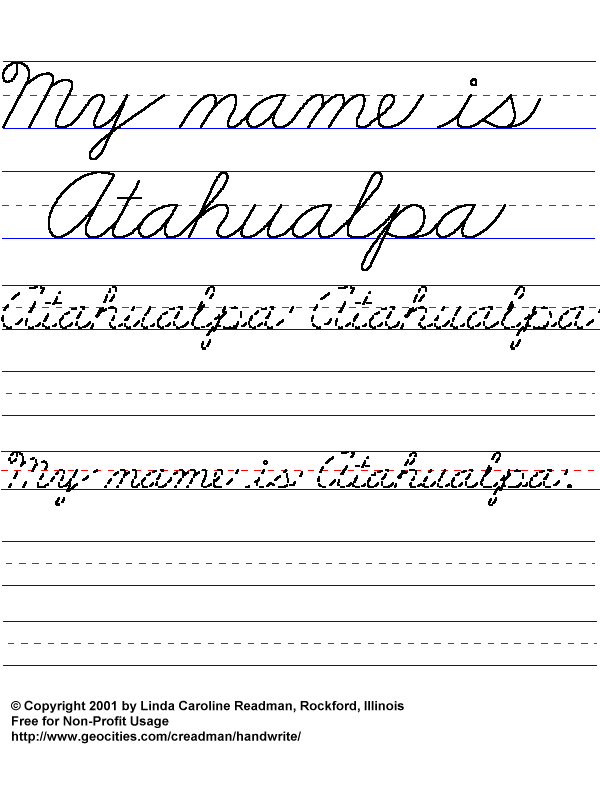 My name is
Atahualpa
Atahualpa Atahualpa
My name is Atahualpa.
© Copyright 2001 by Linda Caroline Readman, Rockford, Illinois
Free for Non-Profit Usage
http://www.geocities.com/creadman/handwrite/